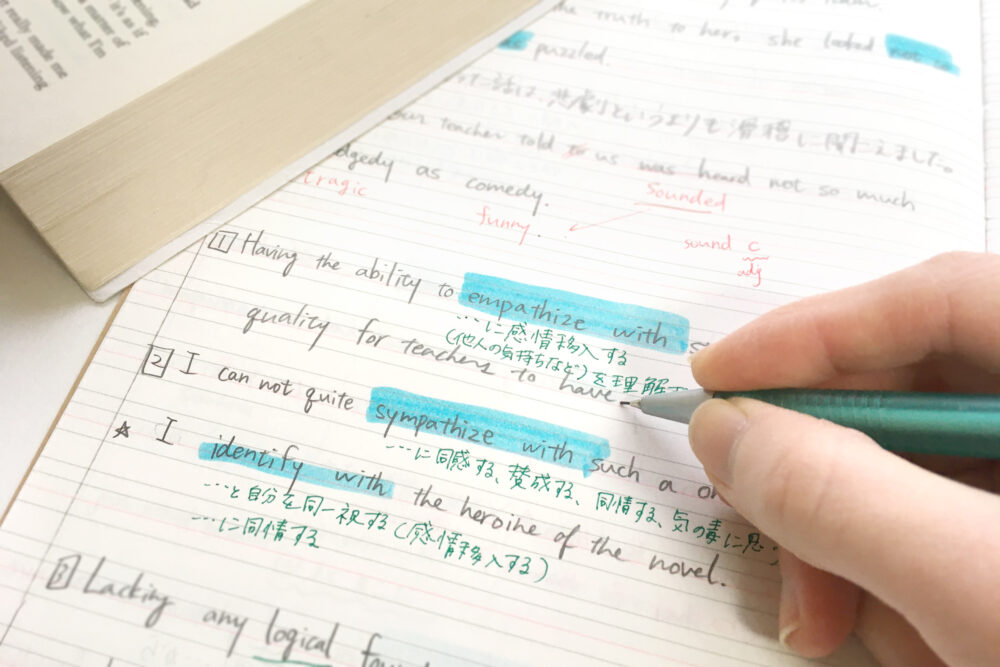 it's as if
a matter of
me what I'm
really made me
had listening
the truth to her, she looked not so
as puzzled.
って話は、悲劇というよりも滑稽に聞こえました。
our teacher told to us was heard not so much
tragedy as comedy.
Sounded
tragic
funny.
sound c
adj
1 Having the ability to empathize with
…に感情移入する
(他人の気持ちなど)を理解す
quality for teachers to have
2 I can not quite sympathize with such a
…に同感する、賛成する、同情する、気の毒に思う
☆ I identify with the heroine of the novel.
…と自分を同一視する(感情移入する)
…に同情する
3 Lacking any logical